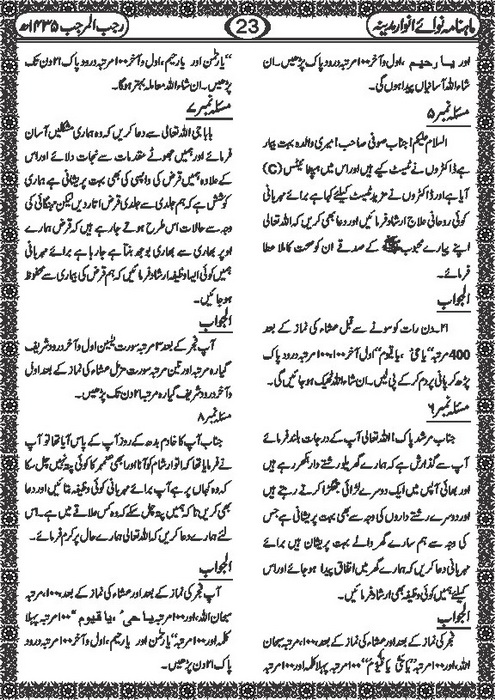 ماہنامہ نوائے انوار مدینہ
23
رجب المرجب ۱۴۳۵ھ
اور یا رحیم، اول و آخر ۱۰۰ مرتبہ درود پاک پڑھیں۔ ان
شاء اللہ آسانیاں پیدا ہوں گی۔
مسئلہ نمبر ۵
السلام علیکم! جناب صوفی صاحب میری والدہ بہت بیمار
ہے ڈاکٹروں نے ٹیسٹ کیے ہیں اور اس میں ہیپاٹائیٹس (C)
آیا ہے اور ڈاکٹروں نے مزید ٹیسٹ کیلئے کہا ہے برائے مہربانی
کوئی روحانی علاج ارشاد فرمائیں اور دعا بھی کریں کہ اللہ تعالی
اپنے پیارے محبوب ﷺ کے صدقے ان کو صحت کاملہ عطا
فرمائے۔
الجواب
۲۱ دن رات کو سونے سے قبل عشاء کی نماز کے بعد
400 مرتبہ ”یا حی، یا قیوم“ اول آخر ۱۰۰، ۱۰۰ مرتبہ درود پاک
پڑھ کر پانی پر دم کر کے پی لیں۔ ان شاء اللہ ٹھیک ہو جائیں گی۔
مسئلہ نمبر ۶
جناب مرشد پاک! اللہ تعالی آپ کے درجات بلند فرمائے
آپ سے گذارش ہے کہ ہمارے گھریلو رشتے دار بکھرے ہیں
اور بھائی آپس میں ایک دوسرے لڑائی جھگڑا کرتے رہتے ہیں
اور دوسرے رشتے داروں کی وجہ سے بھی بہت پریشانی ہے جس
کی وجہ سے ہم سارے گھر والے بہت پریشان ہیں برائے
مہربانی دعا کریں کہ ہمارے گھر میں اتفاق پیدا ہو جائے اور اس
کیلئے ہمیں کوئی وظیفہ بھی ارشاد فرمائیں۔
الجواب
فجر کی نماز کے بعد اور عشاء کی نماز کے بعد، ۱۰۰ مرتبہ سبحان
اللہ، اور ۱۰۰ مرتبہ ”یا حی یا قیوم“ ۱۰۰ مرتبہ پہلا کلمہ اور ۱۰۰ مرتبہ
”یا رحمٰن اور یا رحیم، اول و آخر ۱۰۰ مرتبہ درود پاک ۲۱ دن تک
پڑھیں۔ ان شاء اللہ معاملہ بہتر ہوگا۔
مسئلہ نمبر ۷
بابا جی اللہ تعالی سے دعا کریں کہ وہ ہماری مشکلیں آسان
فرمائے اور ہمیں جھوٹے مقدمات سے نجات دلائے اور اس
کے علاوہ ہمیں قرض کی واپسی کی بھی بہت پریشانی ہے ہماری
کوشش ہے کہ ہم جلدی سے جلدی قرض اتار دیں لیکن مہنگائی کی
وجہ سے حالات اس طرح ہوتے جا رہے ہیں کہ قرض ہمارے
اوپر بھاری سے بھاری بوجھ بنتا ہے جا رہا ہے برائے مہربانی
ہمیں کوئی ایسا وظیفہ ارشاد فرمائیں کہ ہم قرض کی بیماری سے محفوظ
ہو جائیں۔
الجواب
آپ فجر کے بعد ۳ مرتبہ سورت یٰسین اول و آخر درود شریف
گیارہ مرتبہ اور تین مرتبہ سورت مزمل عشاء کی نماز کے بعد اول
و آخر درود شریف گیارہ مرتبہ ۲۱ دن تک پڑھیں۔
مسئلہ نمبر ۸
جناب آپ کا خادم بدھ کے روز آپ کے پاس آیا تھا تو آپ
نے فرمایا تھا کہ اتوار شام کو آنا اور ابھی تک عمیر کا کوئی پتہ نہیں چل سکا
کہ وہ کہاں پر ہے آپ برائے مہربانی کوئی وظیفہ بتائیں اور دعا
بھی کریں تا کہ ہمیں پتہ چل سکے کہ وہ کس علاقے میں ہے۔ اس
لئے ہمارے دعا کریں کہ اللہ تعالی ہمارے حال پر کرم فرمائے۔
الجواب
آپ فجر کی نماز کے بعد اور عشاء کی نماز کے بعد، ۱۰۰ مرتبہ
سبحان اللہ، اور ۱۰۰ مرتبہ ”یا حی، یا قیوم“ ۱۰۰ مرتبہ پہلا
کلمہ اور ۱۰۰ مرتبہ ”یا رحمٰن اور یا رحیم، اول و آخر ۱۰۰ مرتبہ درود
پاک ۲۱ دن تک پڑھیں۔